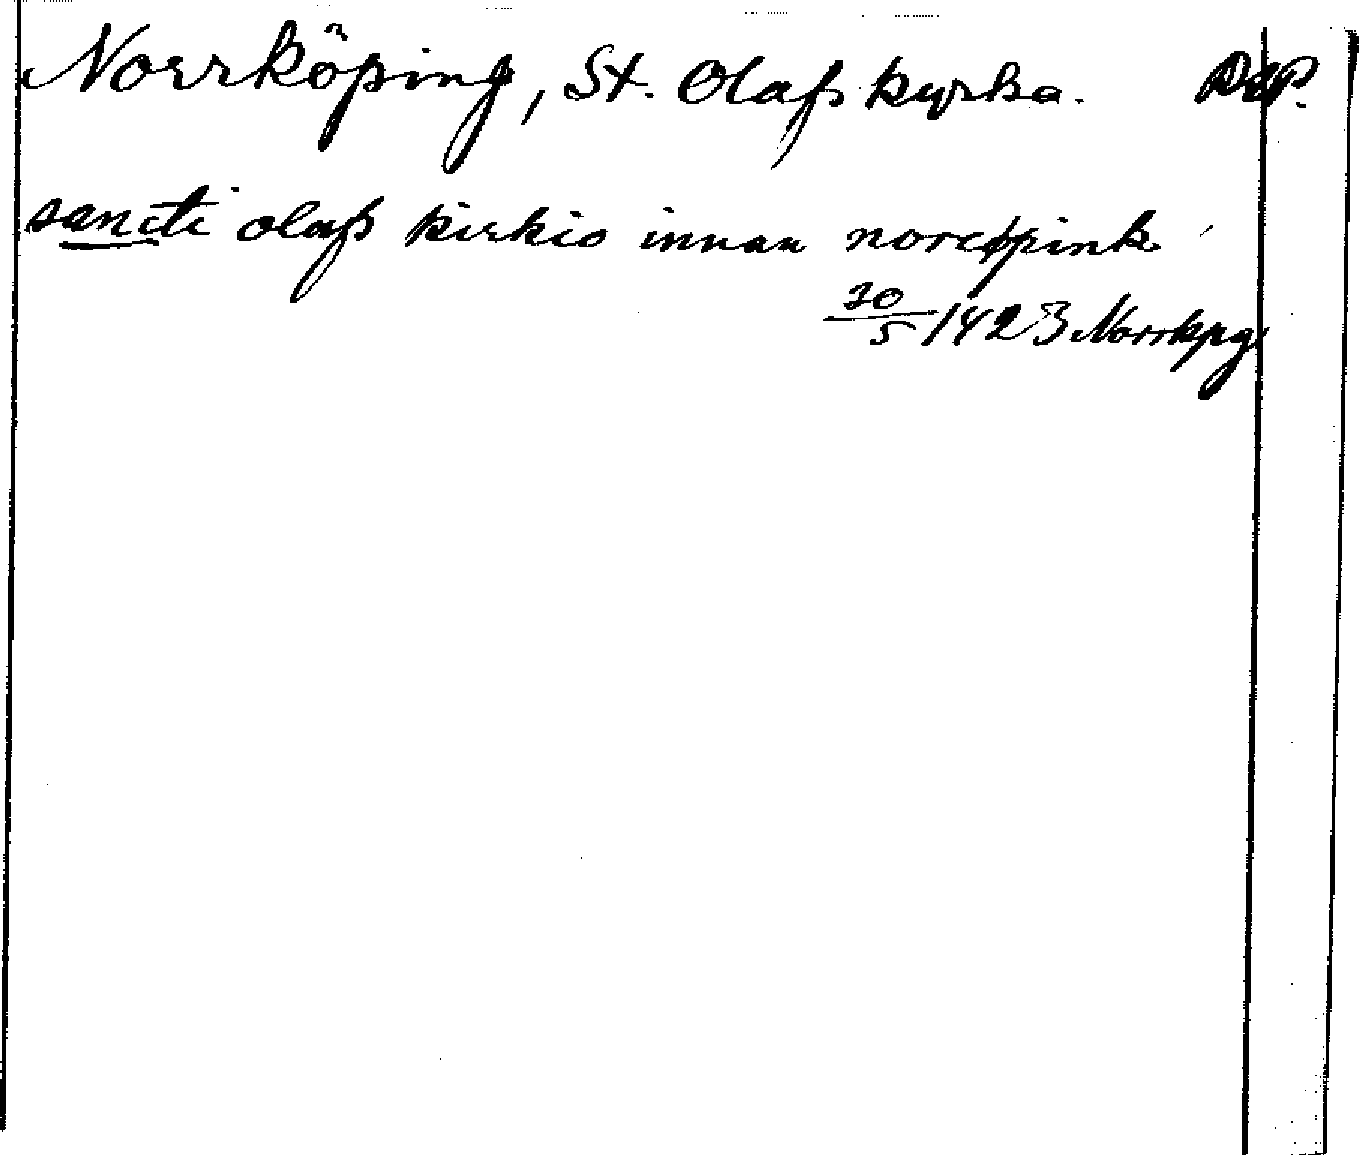 Norrköping, St. Olafs kyrka. Dep.
sancti olafs kirkio innan norcøpink
30/5 1423 Norrkpg